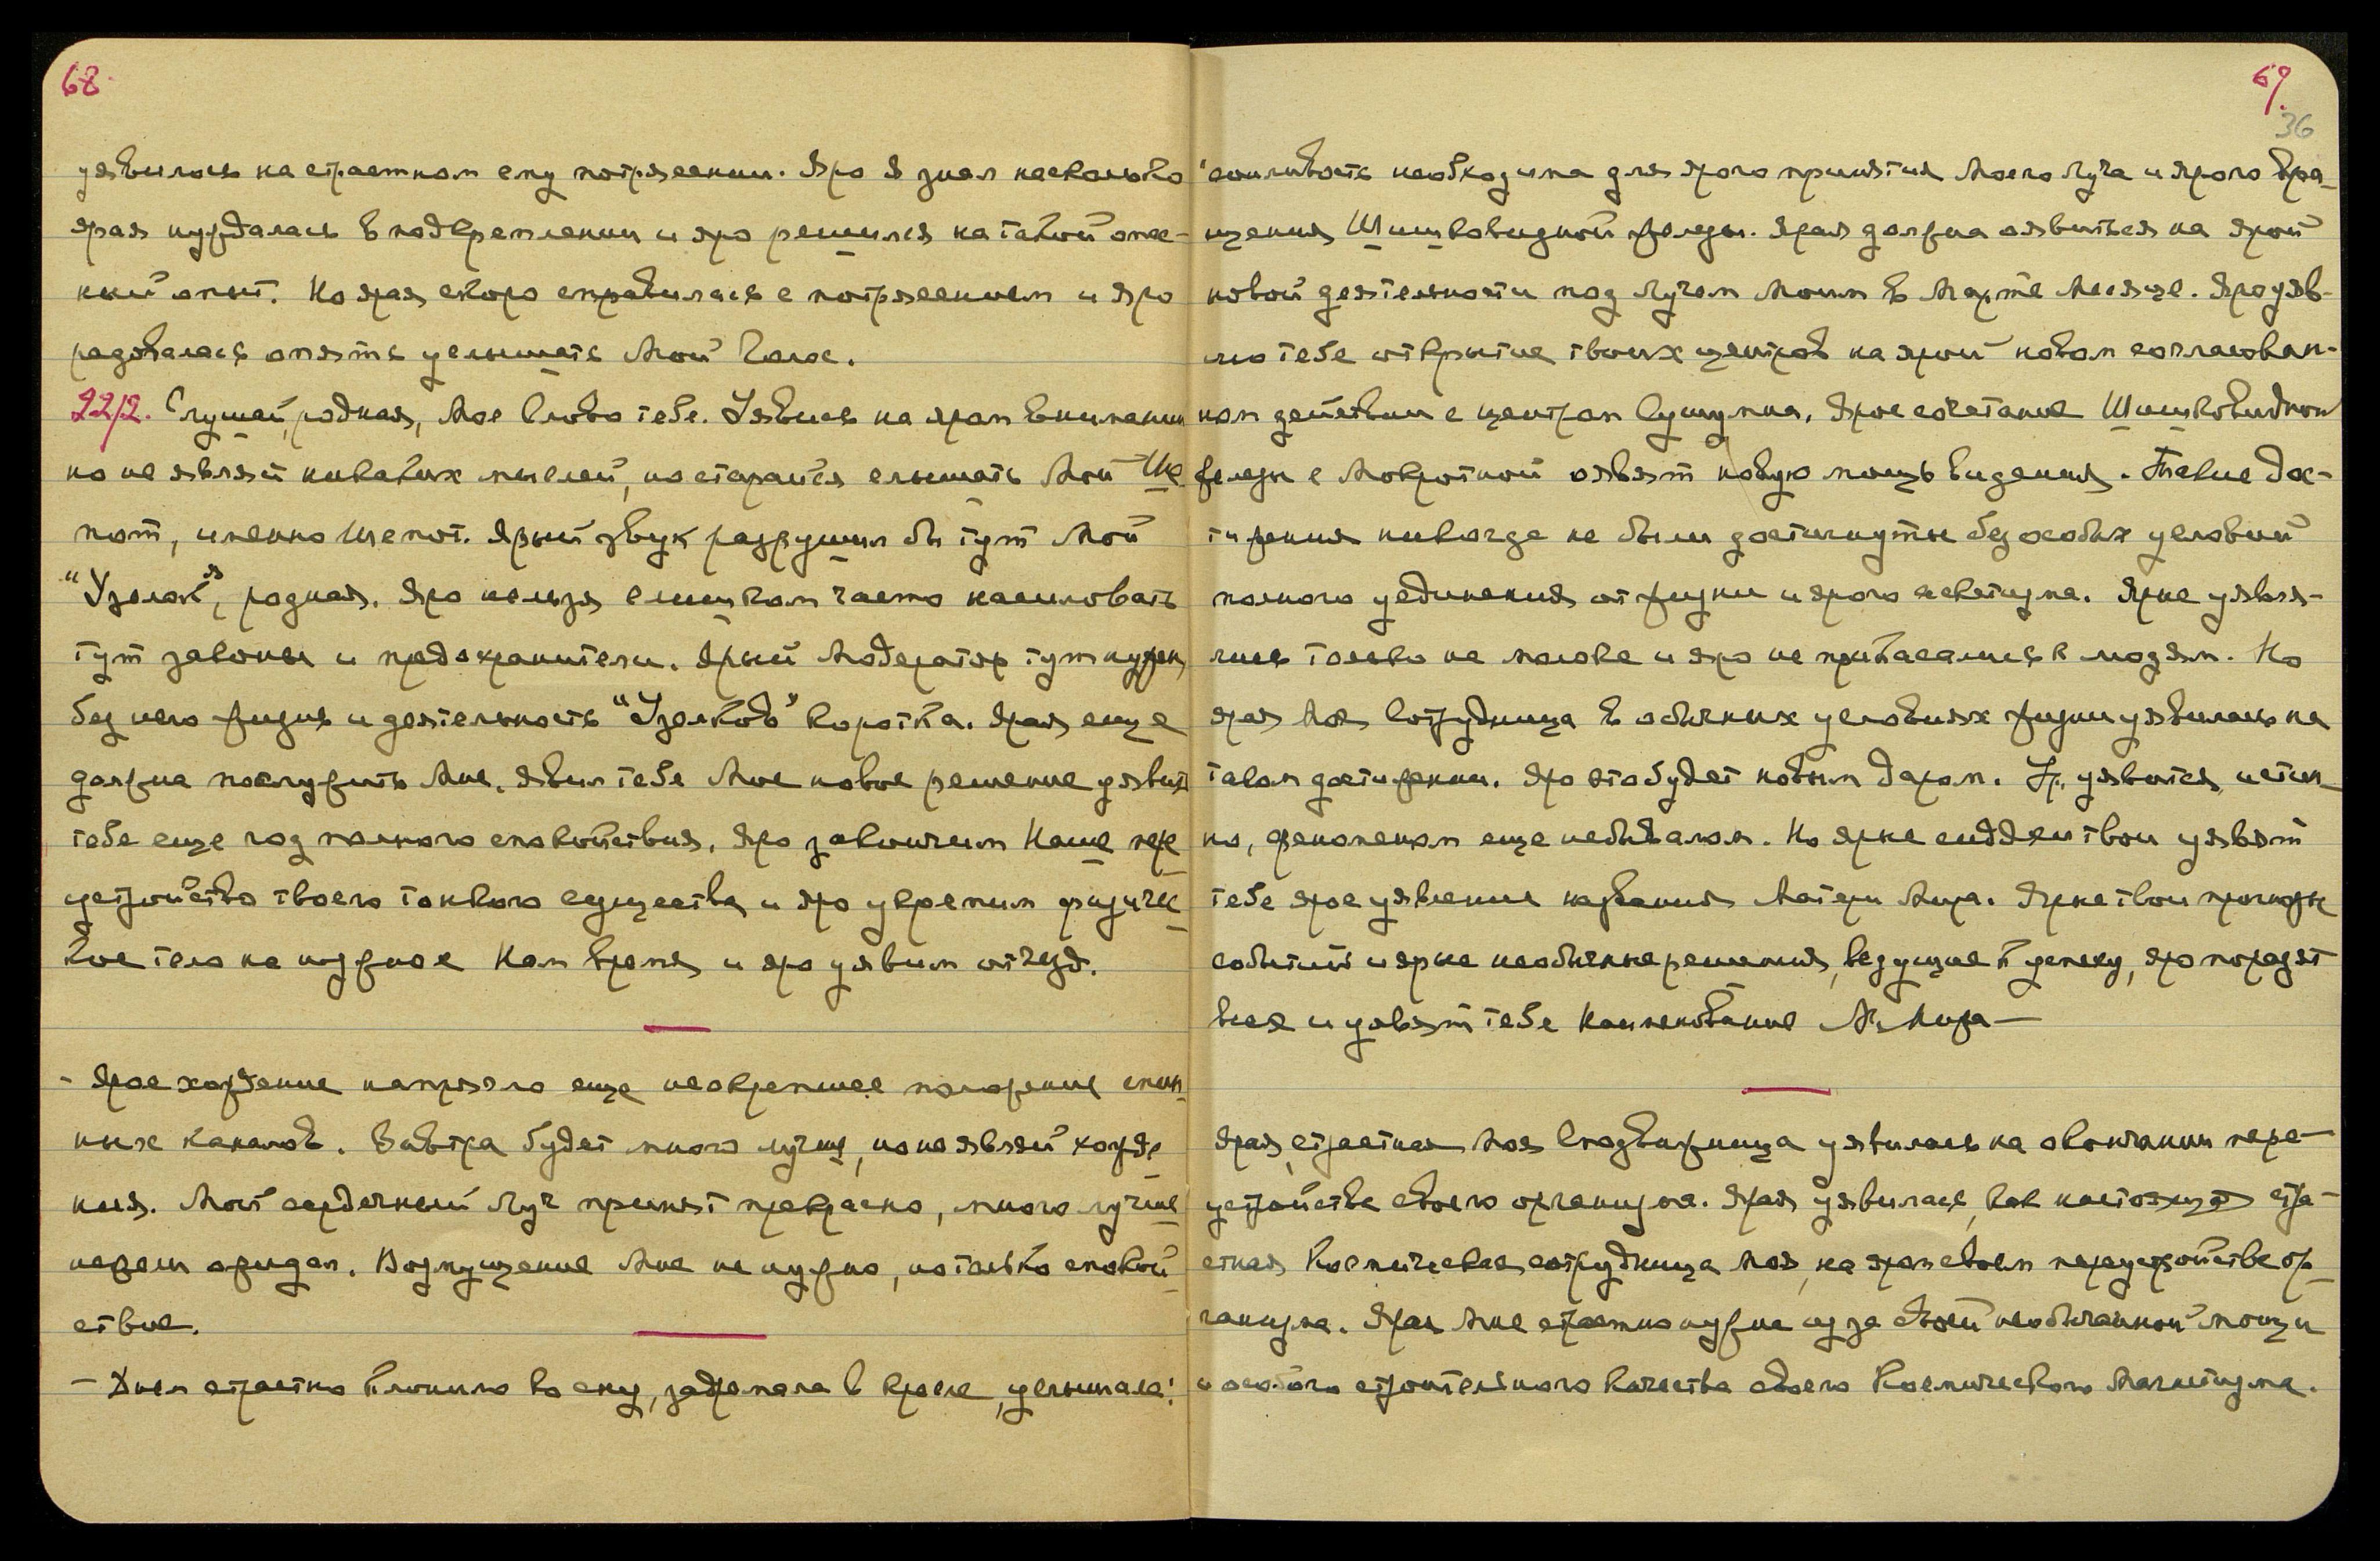 68
уявилась на страстном ему потрясении. Яро Я знал насколько
ярая нуждалась в подкреплении и яро решился на такой опас-
ный опыт. Но ярая скоро справилась с потрясением и яро
радовалась опять услышать Мой Голос.
22/2. Слушай, родная, Мое Слово тебе. Уявись на яром внимании
но не являй никаких мыслей, но старайся слышать Мой Ше
пот, именно Шепот. Ярый звук разрушил бы тут Мой
"Узелок", родная. Яро нельзя слишком часто насиловать
тут законы и предохранители. Ярый Модератор тут нужен,
без него жизнь и деятельность "Узелков" коротка. Ярая еще
должна послужить Мне. Явил тебе Мое новое решение уявить
тебе еще год полного спокойствия. Яро закончим Наше пере
устройство твоего тонкого существа и яро укрепим физичес
кое тело на нужное Нам время и яро уявим отъезд.
- Ярое хождение напрягло еще неокрепшее положение спин
ных каналов. Завтра будет много лучше, но не являй хожде
ния. Мой сердечный Луч принят прекрасно, много лучше
нежели ожидал. Возмущение Мне не нужно, но только спокой
ствие.
- Днем страстно клонило ко сну, задремала в кресле, услышала:
69.
36
"сонливость необходима для ярого принятия Моего Луча и ярого вра-
щения Шишковидной железы. Ярая должна оявиться на ярой
новой деятельности под Лучем Моим в Марте Месяце. Яро уяв-
лю тебе открытие твоих центров на ярой новом согласован-
ном действии с центром Сушумна. Ярое сочетание Шишковидной
железы с Мокротной оявят новую мощь видения. Такие дос-
тижения никогда не были достигнуты без особых условий
полного уединения от жизни и ярого аскетизма. Ярые уявля-
лись только на молоке и яро не прикасались к людям. Но
ярая Моя Сотрудница в обычных условиях жизни уявилась на
таком достижении. Яро это будет новым даром. Ур. уявится, истин-
но, феноменом еще небывалом. Но ярые сиддхи твои уявят
тебе ярое уявление названия Матери Мира. Яркие твои прогнозы
событий и яркие необычные решения, ведущие к успеху, яро поразят
всех и уявят тебе Наименование М. Мира —
Ярая, страстная Моя Сподвижница уявилась на окончании пере-
устройства своего организма. Ярая уявилась, как настоящая стра-
стная Космическая сотрудница Моя, на яром своем переустройстве ор
ганизма. Ярая Мне страстно нужна из за своей необычайной мощи
и особого строительного качества своего Космического Магнетизма.